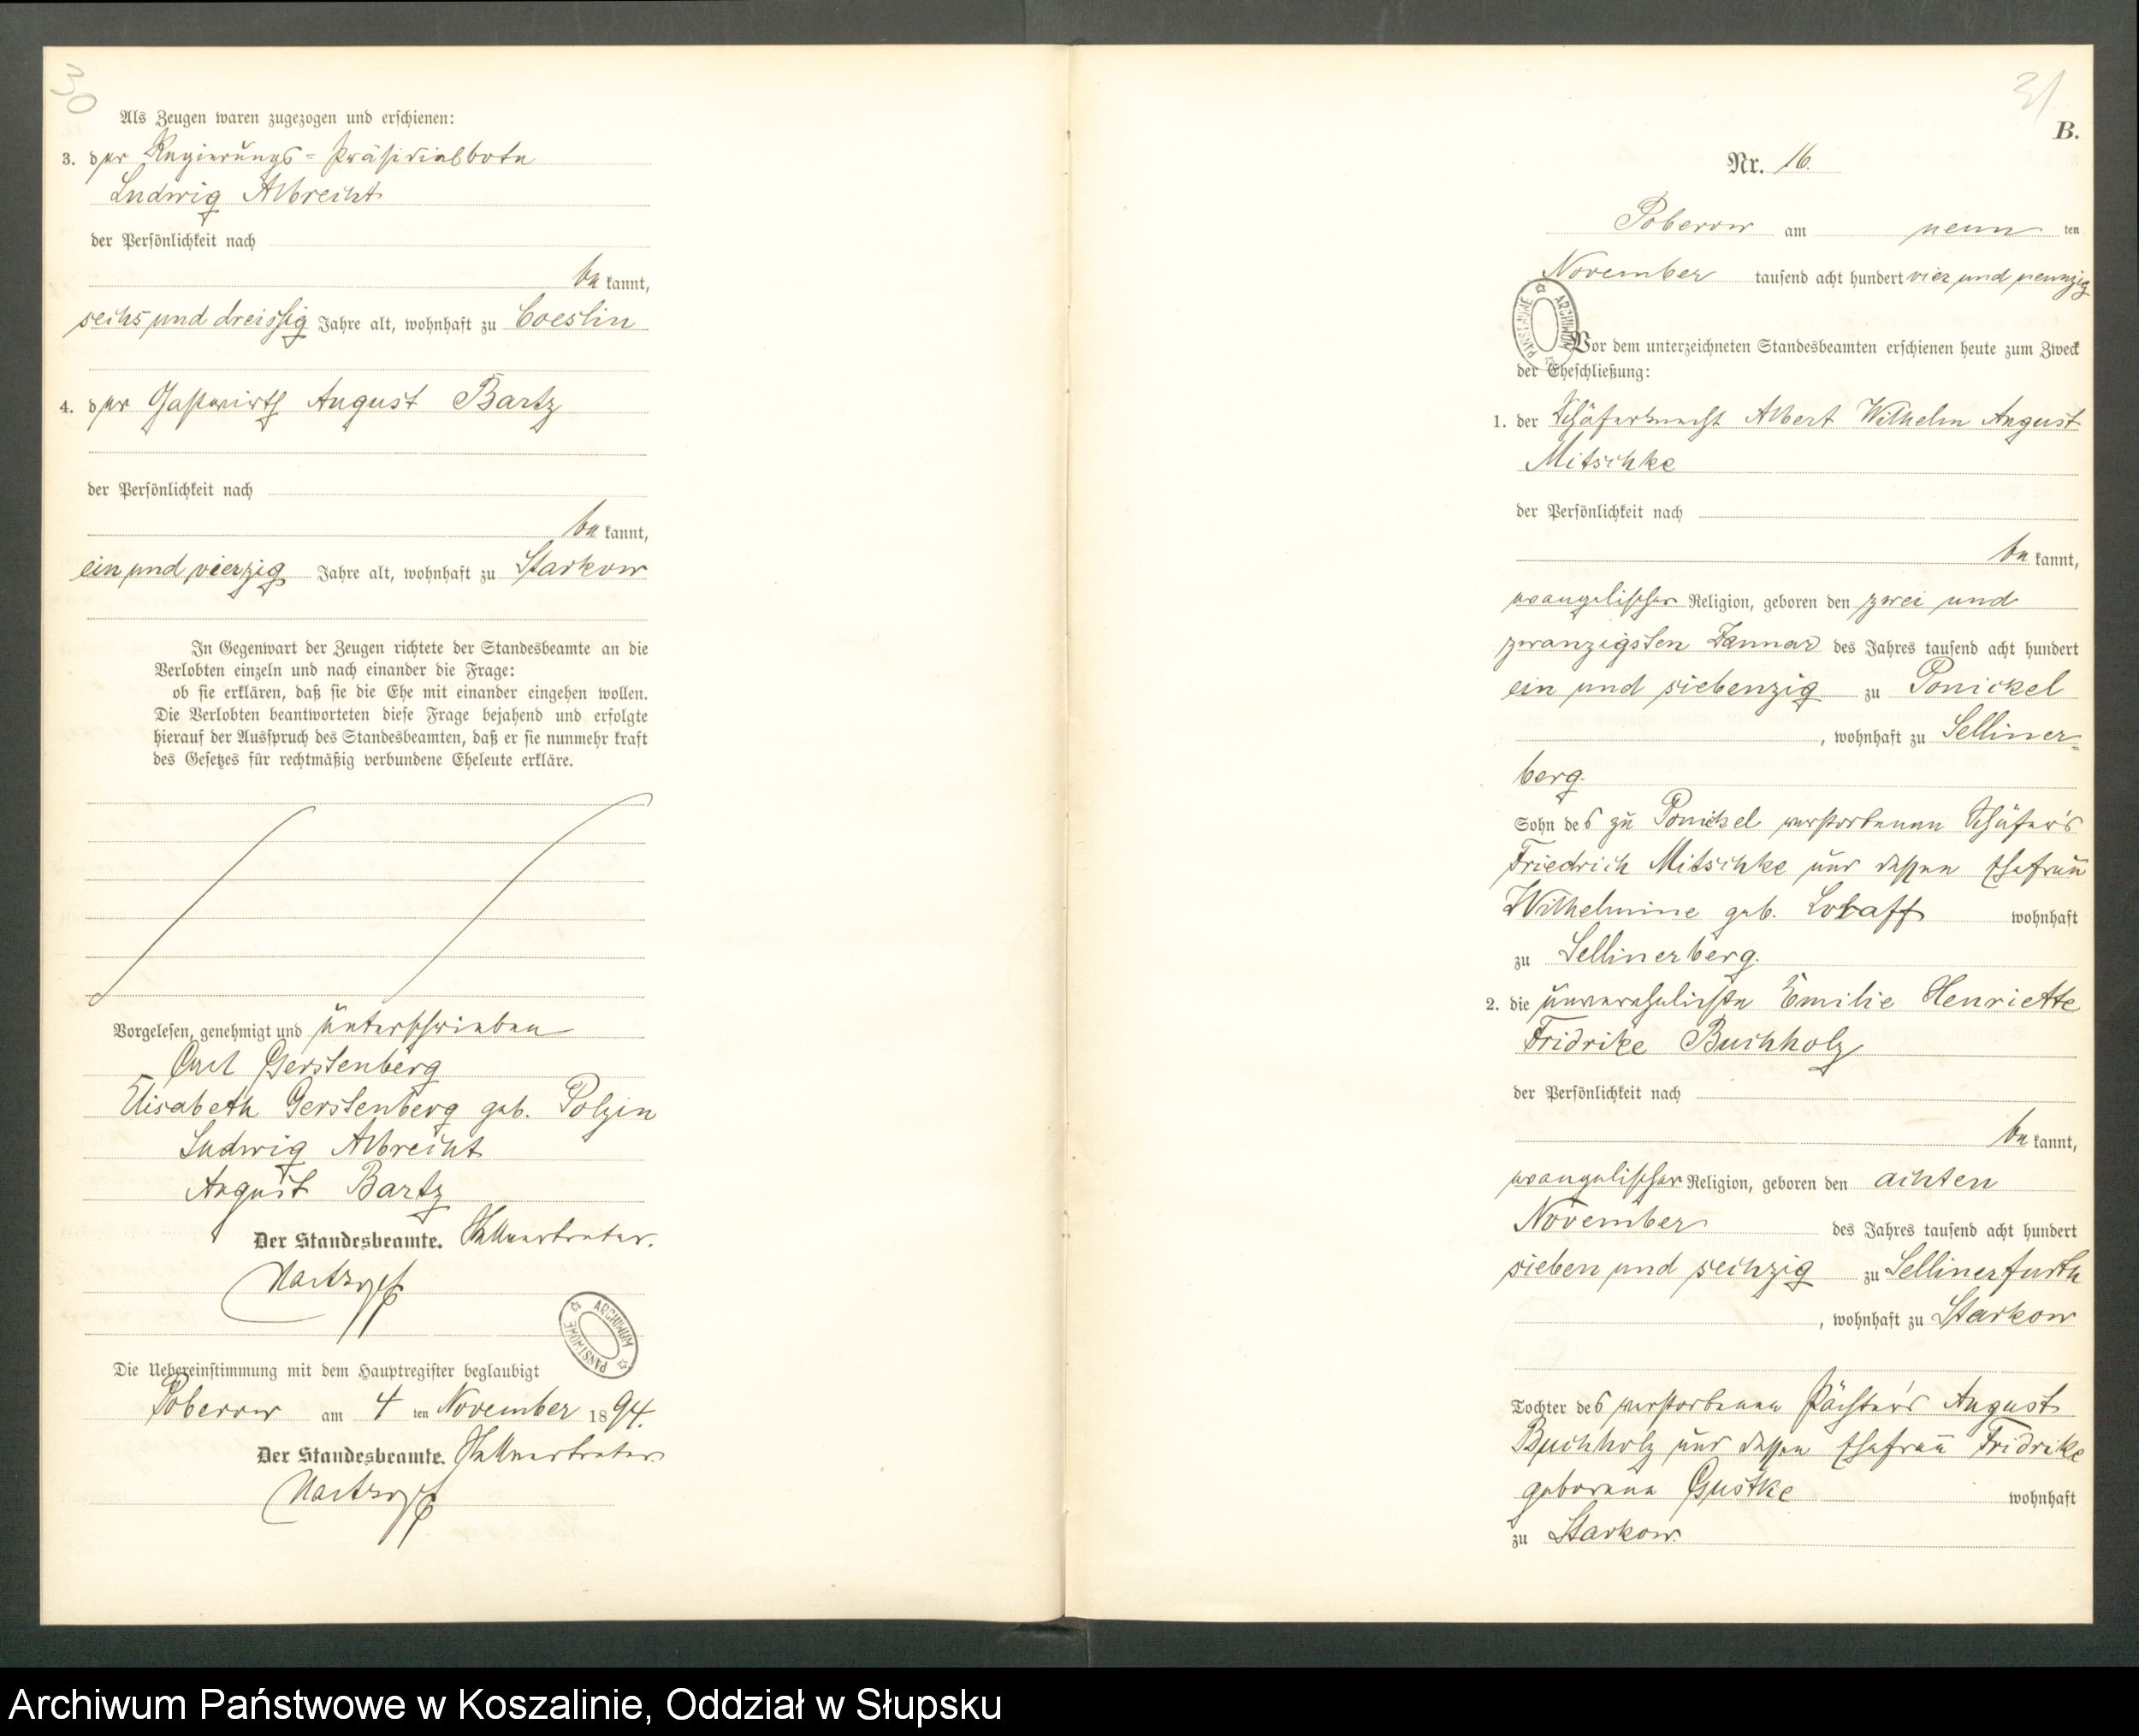 30
Als Zeugen waren zugezogen und erschienen:
3. der Regierungs-Präsidialbote
Ludwig Albrecht
der Persönlichkeit nach
be kannt,
sechs und dreissig Jahre alt, wohnhaft zu Coeslin
4. der Gastwirth August Bartz
der Persönlichkeit nach
be kannt,
ein und vierzig Jahre alt, wohnhaft zu Starkow
In Gegenwart der Zeugen richtete der Standesbeamte an die
Verlobten einzeln und nach einander die Frage:
ob sie erklären, daß sie die Ehe mit einander eingehen wollen.
Die Verlobten beantworteten diese Frage bejahend und erfolgte
hierauf der Ausspruch des Standesbeamten, daß er sie nunmehr kraft
des Gesetzes für rechtmäßig verbundene Eheleute erkläre.
Vorgelesen, genehmigt und unterschrieben
Carl Gerstenberg
Elisabeth Gerstenberg geb. Polzin
Ludwig Albrecht
August Bartz
Der Standesbeamte. Stellvertreter.
ARCHIWUM PAŃSTWOWE
Die Uebereinstimmung mit dem Hauptregister beglaubigt
Poberow am 4 ten November 1894.
Der Standesbeamte. Stellvertreter.
31
B.
Nr. 16.
Poberow am neun ten
November tausend acht hundert vier und neunzig
ARCHIWUM PAŃSTWOWE
Vor dem unterzeichneten Standesbeamten erschienen heute zum Zweck
der Eheschließung:
1. der Schäferknecht Albert Wilhelm August
Mitschke
der Persönlichkeit nach
be kannt,
evangelischer Religion, geboren den zwei und
zwanzigsten Januar des Jahres tausend acht hundert
ein und siebenzig zu Ponickel
, wohnhaft zu Selliner-
berg.
Sohn des zu Ponickel verstorbenen Schäfer's
Friedrich Mitschke und dessen Ehefrau
Wilhelmine geb. wohnhaft
zu Sellinerberg.
2. die unverehelichte Emilie Henriette
Fridrike Buchholz
der Persönlichkeit nach
be kannt,
evangelischer Religion, geboren den achten
November des Jahres tausend acht hundert
sieben und sechzig zu Sellinerfurth
, wohnhaft zu Starkow
Tochter des verstorbenen Pächter's August
Buchholz und dessen Ehefrau Fridrike
geborene Gustke wohnhaft
zu Starkow.
Archiwum Państwowe w Koszalinie, Oddział w Słupsku